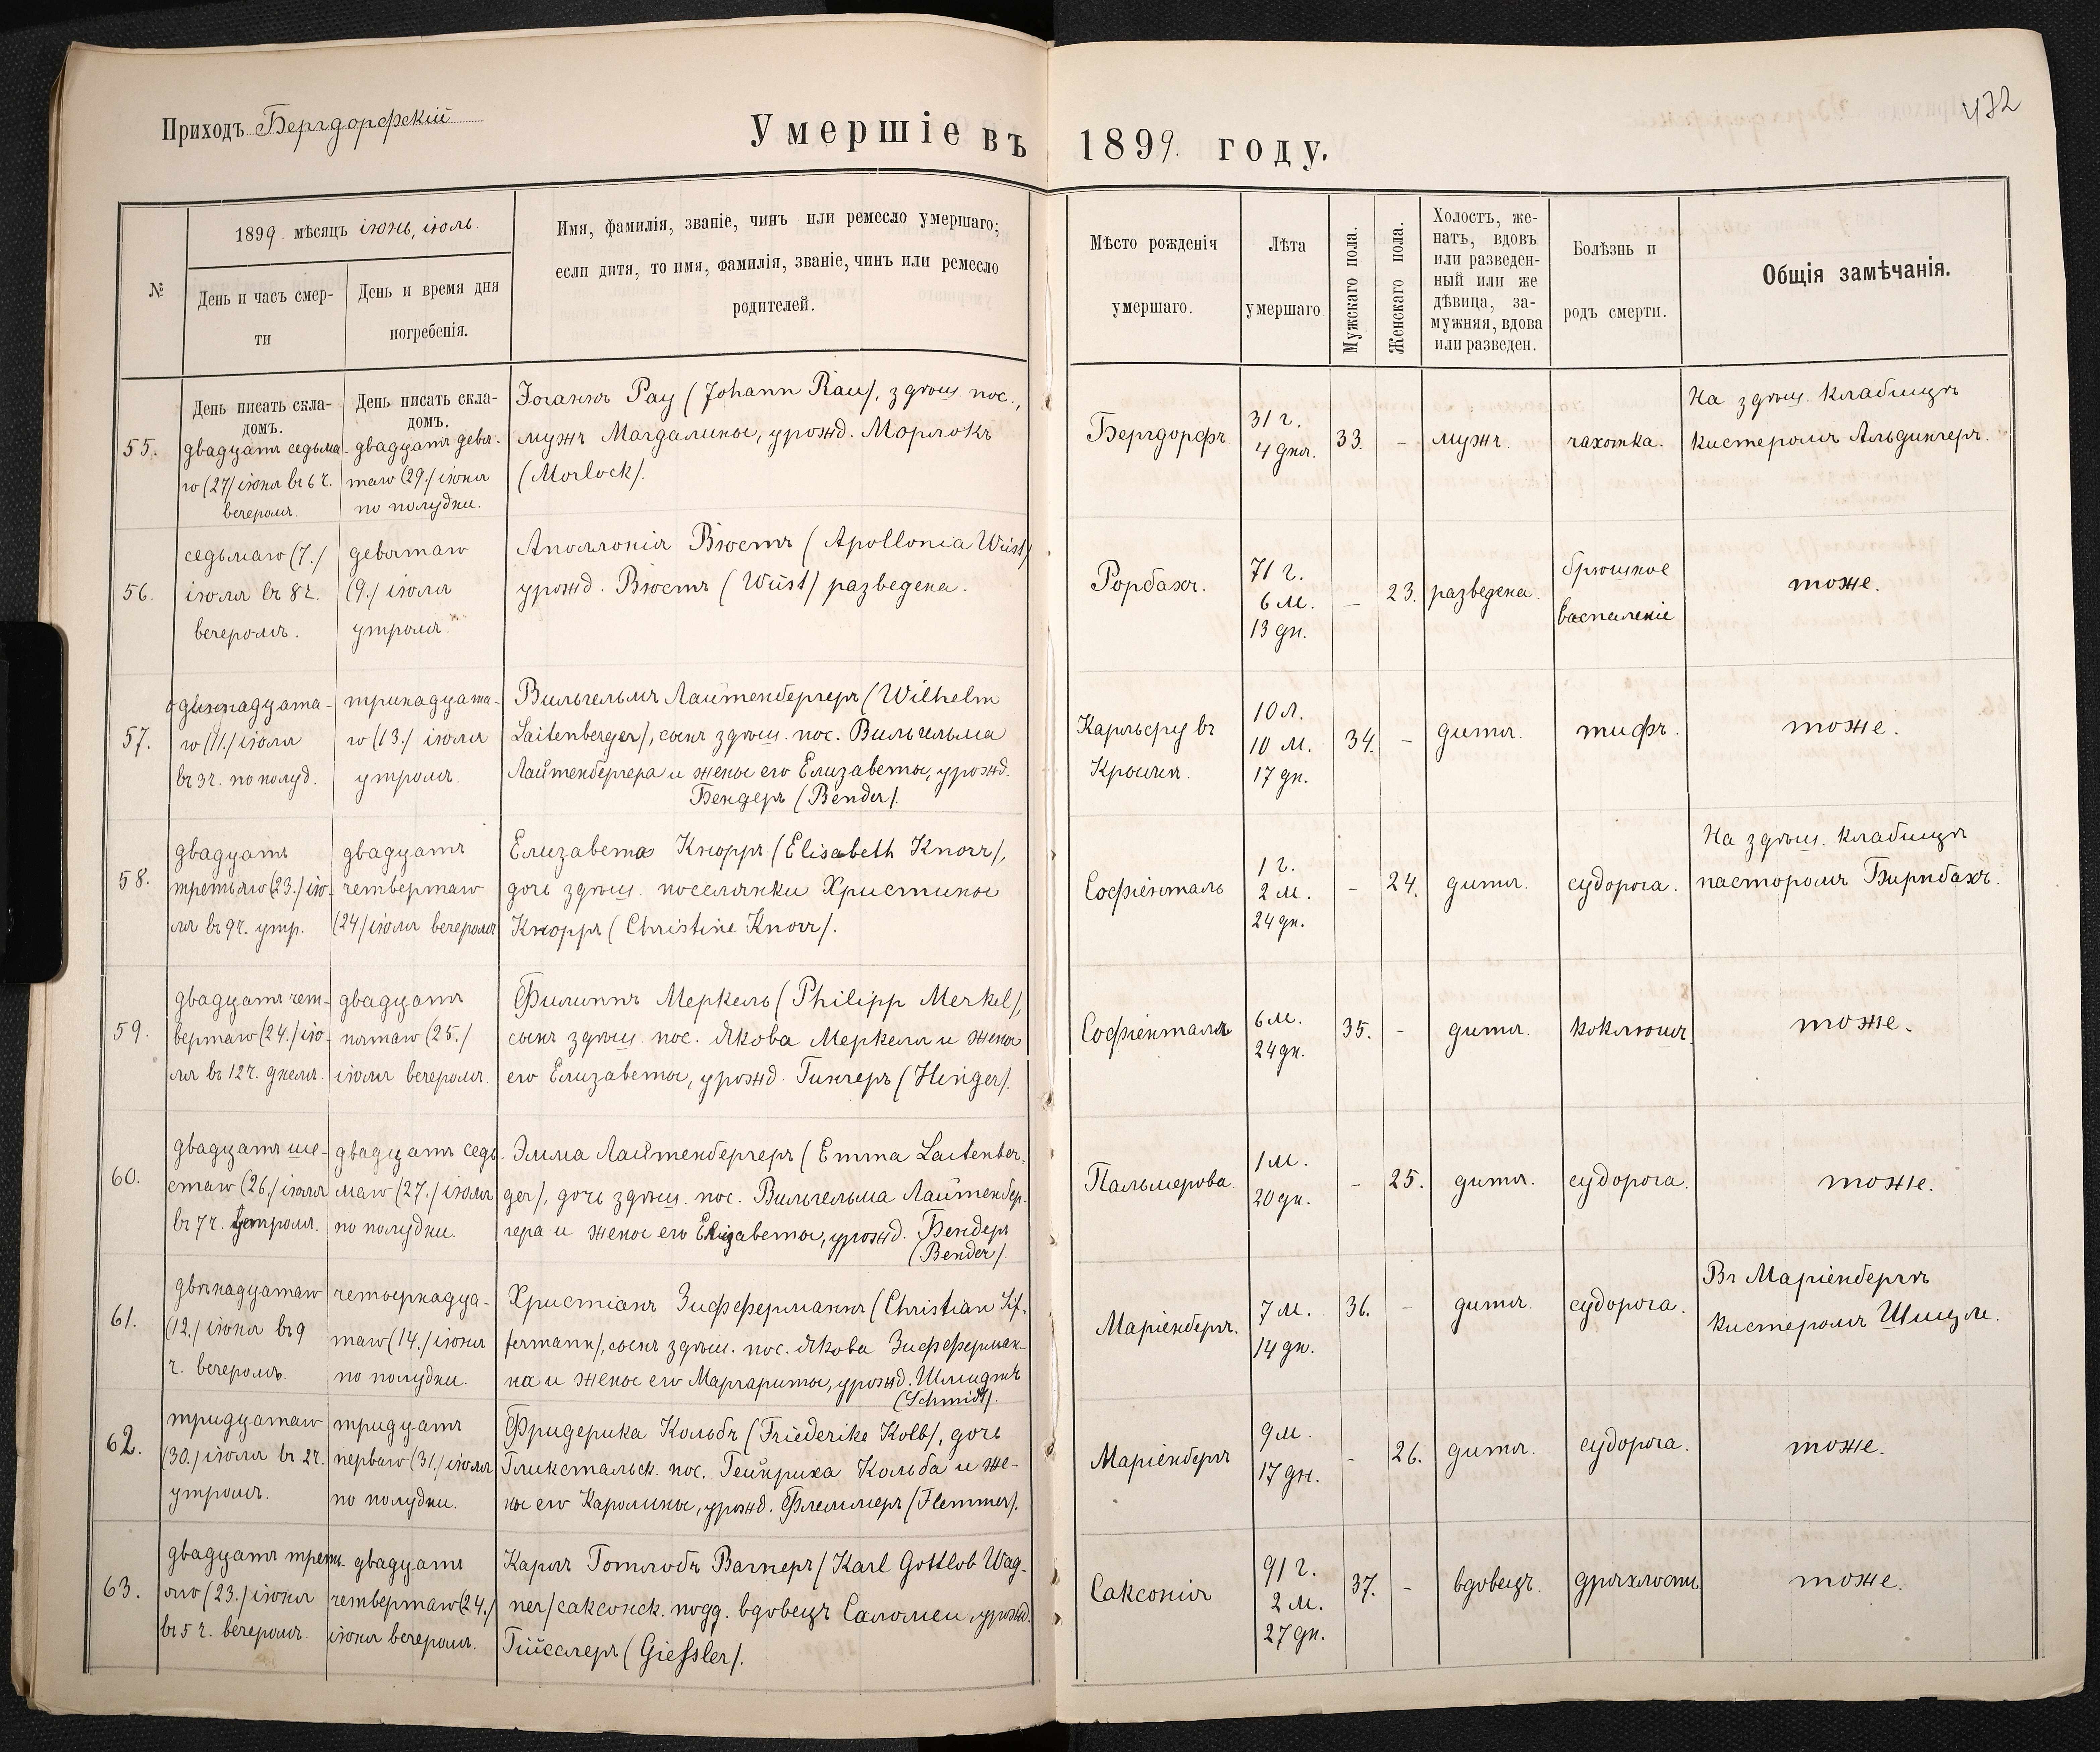 Приходъ Бергдорфскій
Умершіе въ 1899. году.
432
№
1899. мѣсяцъ іюнь, іюль.
День и часъ смер-
ти
День и время дня
погребенія.
Имя, фамилія, званіе, чинъ или ремесло умершаго;
если дитя, то имя, фамилія, званіе, чинъ или ремесло
родителей.
Мѣсто рожденія
умершаго.
Лѣта
умершаго
Мужскаго пола.
Женскаго пола.
Холостъ, же-
натъ, вдовъ
или разведен-
ный или же
дѣвица, за-
мужняя, вдова
или разведен.
Болѣзнь и
родъ смерти.
Общія замѣчанія.
День писать скла-
домъ.
День писать скла-
домъ.
55.
двадцать седьма-
го (27/ іюня въ 6 ч.
вечеромъ.
двадцать девя-
таго (29./ іюня
по полудни.
Іоганнъ Рау (Johann Rau/, здѣш. пос.,
мужъ Магдалины, урожд. Морлокъ
(Morlock/.
Бергдорфъ
31 г.
4 дня.
33.
-
мужъ.
чахотка.
На здѣш. кладбищѣ
кистеромъ Альдингеръ.
56.
седьмаго (7./
іюля въ 8 ч.
вечеромъ.
девятаго
(9./ іюля
утромъ.
Аполлонія Вюстъ (Apollonia Wüst/
урожд. Вюстъ (Wüst/ разведена.
Рорбахъ.
71 г.
6 м.
13 дн.
-
23.
разведена.
брюшное
воспаленіе
тоже.
57.
одиннадцата-
го (11./ іюля
въ 3 ч. по полуд.
тринадцата-
го (13./ іюля
утромъ.
Вильгельмъ Лайтенбергеръ (Wilhelm
Laitenberger/, сынъ здѣш. пос. Вильгельма
Лайтенбергера и жены его Елизаветы, урожд.
Бендеръ (Bender/.
Карльсру въ
Крыму.
10 л.
10 м.
17 дн.
34.
-
дитя.
тифъ.
тоже.
58.
двадцать
третьяго (23./ ію-
ля въ 9 ч. утр.
двадцать
четвертаго
(24/ іюля вечеромъ
Елизавета Кнорръ (Elisabeth Knorr/,
дочь здѣш. поселянки Христины
Кнорръ (Christine Knorr/.
Софіенталь
1 г.
2 м.
24 дн.
-
24.
дитя.
судорога.
На здѣш. кладбищѣ
пасторомъ Бирнбахъ.
59.
двадцать чет-
вертаго (24./ ію-
ля въ 12 ч. днемъ.
двадцать
пятаго (25./
іюля вечеромъ.
Филиппъ Меркель (Philipp Merkel/,
сынъ здѣш. пос. Якова Меркеля и жены
его Елизаветы, урожд. Гингеръ (Hinger/.
Софіенталь
6 м.
24 дн.
35.
-
дитя.
коклюшъ.
тоже.
60.
двадцать ше-
стаго (26./ іюля
въ 7 ч. утромъ.
двадцать седь-
маго (27./ іюля
по полудни.
Эмма Лайтенбергеръ (Emma Laitenber-
ger/, дочь здѣш. пос. Вильгельма Лайтенбер-
гера и жены его Елизаветы, урожд. Бендеръ
(Bender/.
Пальмерова.
1 м.
20 дн.
-
25.
дитя.
судорога.
тоже.
61.
двѣнадцатаго
(12./ іюня въ 9
ч. вечеромъ.
четырнадца-
таго (14./ іюня
по полудни.
Христіанъ Зифферманнъ (Christian Sif-
fermann/, сынъ здѣш. пос. Якова Зифферман-
на и жены его Маргариты, урожд. Шмидтъ
(Schmidt/.
Маріенбергъ.
7 м.
14 дн.
36.
-
дитя.
судорога.
Въ Маріенбергѣ
кистеромъ Шицле.
62.
тридцатаго
(30./ іюля въ 2 ч.
утромъ.
тридцать
перваго (31./ іюля
по полудни.
Фридерика Кольбъ (Friederike Kolb/, дочь
Гликстальск. пос. Гейнриха Кольба и же-
ны его Каролины, урожд. Флеммеръ (Flemmer/.
Маріенбергъ
9 м.
17 дн.
-
26.
дитя.
судорога.
тоже.
63.
двадцать треть-
яго (23./ іюня
въ 5 ч. вечеромъ.
двадцать
четвертаго (24./
іюня вечеромъ.
Карлъ Готлобъ Вагнеръ (Karl Gottlob Wag-
ner/ саксонск. подд. вдовецъ Саломеи, урожд.
Гисслеръ (Giessler/.
Саксонія
91 г.
2 м.
27 дн.
37.
-
вдовецъ.
дряхлость
тоже.